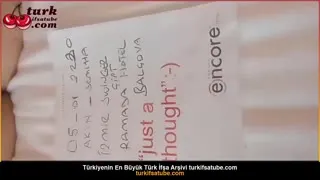 turk
ifsatube.com
05-01
İZMİR SWINGER
ÇİFT
RAMADA HOTEL
BALÇOVA
"just a
thought" :-)
encore
Türkiyenin En Büyük Türk İfşa Arşivi turkifsatube.com
turkifsatube.com